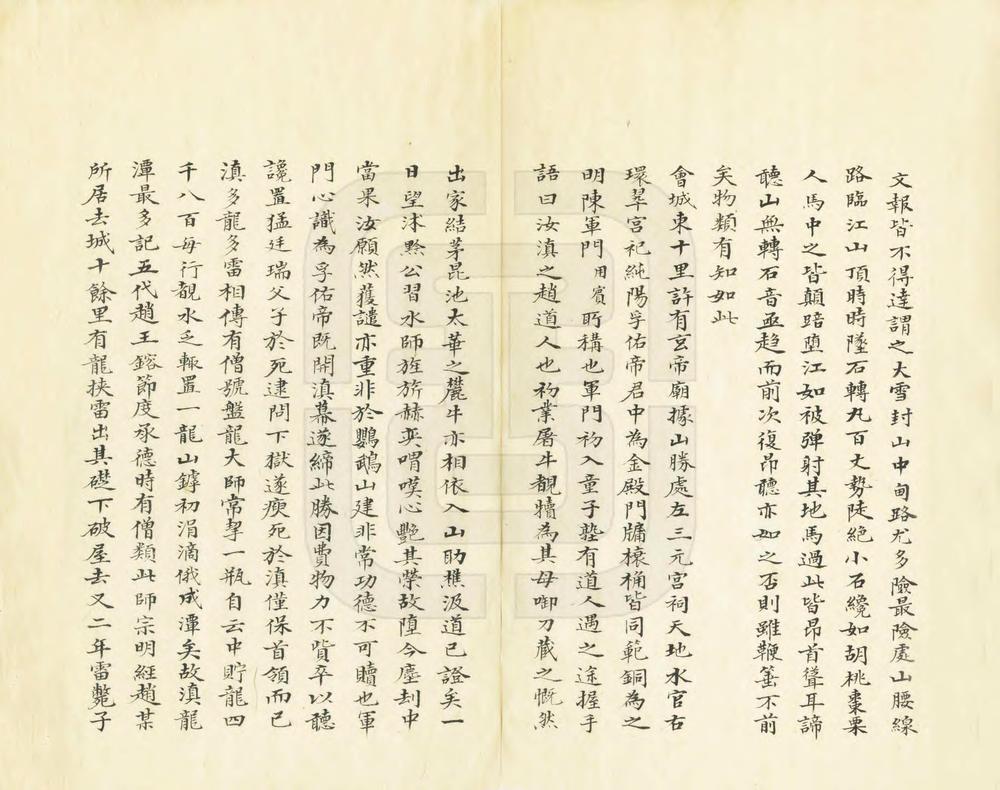 文報皆不得達謂之大雪封山中甸路尤多險最險處山腰線
路臨江山頂時時墜石轉九百丈勢陡絕小石纔如胡桃棗栗
人馬中之皆顛踣墮江如被彈射其地馬過此皆昂首聳耳諦
聽山無轉石音亟趋而前次復昂聽亦如之否則雖鞭箠不前
矣物類有知如此
會城東十里許有玄帝廟據山勝處左三元宮祠天地水官右
環翠宮祀純陽孚佑帝君中為金殿門牖榱桷皆同範銅為之
明陳軍門用賓所構也軍門初入童子塾有道人遇之途握手
語曰汝滇之趙道人也初業屠牛覩犢為其母啣刀藏之慨然
出家結茅昆池太華之麓牛亦相依入山助樵汲道已證矣一
日望沭黔公習水師旌旂赫奕喟嘆心艷其榮故墮今塵刦中
當果汝願然獲譴亦重非於鸚鵡山建非常功德不可贖也軍
門心識為孚佑帝既開滇幕遂締此勝因費物力不貲卒以聽
讒置猛廷瑞父子於死逮問下獄遂瘐死於滇僅保首領而已
滇多龍多雷相傳有僧號盤龍大師常挈一瓶自云中貯龍四
千八百每行覩水乏輒置一龍山罅初涓滴俄成潭矣故滇龍
潭最多記五代趙王鎔節度承德時有僧類此師宗明經趙某
所居去城十餘里有龍挾雷出其礎下破屋去又二年雷斃子